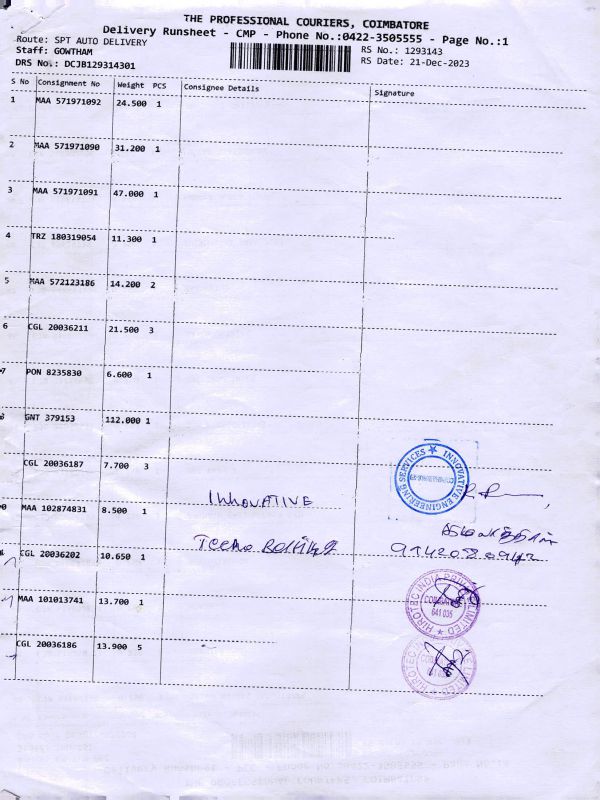 THE PROFESSIONAL COURIERS, COIMBATORE
Delivery Runsheet - CMP - Phone No.:0422-3505555 - Page No.:1
Route: SPT AUTO DELIVERY
Staff: GOWTHAM
DRS No.: DCJB129314301
RS No.: 1293143
RS Date: 21-Dec-2023
S No Consignment No Weight PCS Consignee Details Signature
1 MAA 571971092 24.500 1
2 MAA 571971090 31.200 1
3 MAA 571971091 47.000 1
4 TRZ 180319054 11.300 1
5 MAA 572123186 14.200 2
6 CGL 20036211 21.500 3
7 PON 8235830 6.600 1
GNT 379153 112.000 1
CGL 20036187 7.700 3
INNOVATIVE ENGINEERING SERVICES
MAA 102874831 8.500 1 INNOVATIVE
CGL 20036202 10.650 1
MAA 101013741 13.700 1
HIROTEC INDIA PRIVATE LIMITED
641 035
CGL 20036186 13.900 5